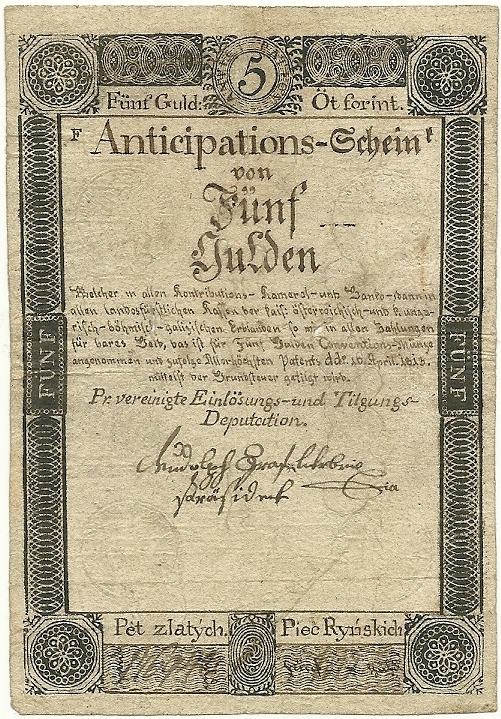 5
Fünf Guld: Öt forint.
F Anticipations-Schein F
von
Fünf
Gulden
Welcher in allen Kontributions- Kameral- und Banko- dann in
allen landesfürstlichen Kassen der kais: österreichisch- und
risch-böhmisch- galizischen Erblanden so wie in allen Zahlungen
für bares Geld, das ist für Fünf Gulden Conventions-Münze
angenommen und zufolge Allerhöchsten Patents ddº. 16. April. 1813.
mittelst der Grundsteuer getilgt wird.
Pr. vereinigte Einlösungs- und Tilgungs-
Deputation.
Rudolph Graf
Präsident
FÜNF
FÜNF
Pět zlatých. Pieć Ryńskich